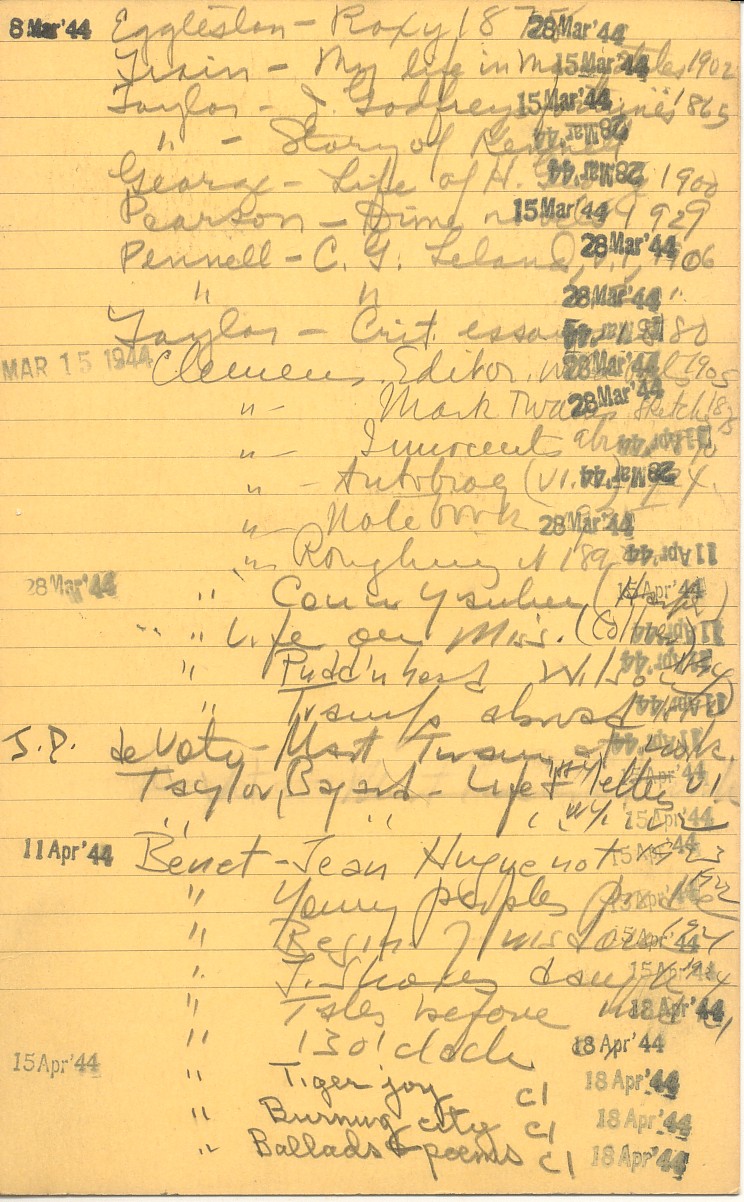 8 Mar '44 Eggleston - Roxy 1875 28 Mar '44
Train - My life in 15 Mar '44 1902
Taylor - J. Godfrey 15 Mar '44 1865
" - Story of Kennett 28 Mar '44
George - Life of H. 28 Mar '44 1900
Pearson - Dime novels 15 Mar '44 1929
Pennell - C. G. Leland, v.1, 28 Mar '44 1906
" " 28 Mar '44 "
Taylor - Crit. essays 1880
MAR 15 1944 Clemens, Editor. 28 Mar '44 1905
" - Mark Twain's Sketches 28 Mar '44 1875
" Innocents abroad 11 Apr '44
" - Autobiog (v1. 28 Mar '44
" Notebook 28 Mar '44
" Roughing it 189 11 Apr '44
28 Mar '44 " Conn Yankee (Harper) 15 Apr '44
" Life on Miss. (Collier) 11 Apr '44
" Pudd'nhead Wilson 11 Apr '44
" Tramp abroad 11 Apr '44
J.P. deVoto - Mark Twain at work. 11 Apr '44
Taylor, Bayard - Life & letters v1 15 Apr '44
" " " 2 15 Apr '44
11 Apr '44 Benet - Jean Huguenot 1923 15 Apr '44
" Young peoples pride 1922 15 Apr '44
" Begin. of wisdom 1921 15 Apr '44
" J. Shore's daugh 15 Apr '44
" Tales before midn 18 Apr '44
" 13 o'clock 18 Apr '44
15 Apr '44 " Tiger joy c1 18 Apr '44
" Burning city c1 18 Apr '44
" Ballads & poems c1 18 Apr '44